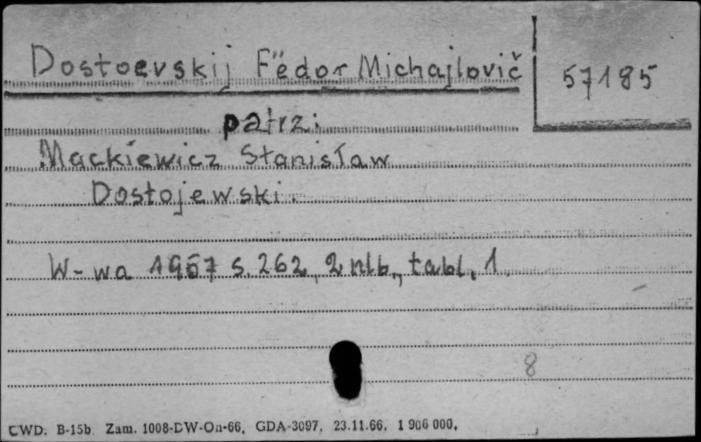 Dostoevskij Fëdor Michajlovič
57185
patrz:
Mackiewicz Stanisław
Dostojewski.
W-wa 1957 s. 262, 2 nlb., tabl. 1
8
CWD. B-15b. Zam. 1008-DW-On-66, GDA-3097, 23.11.66, 1 906 000,